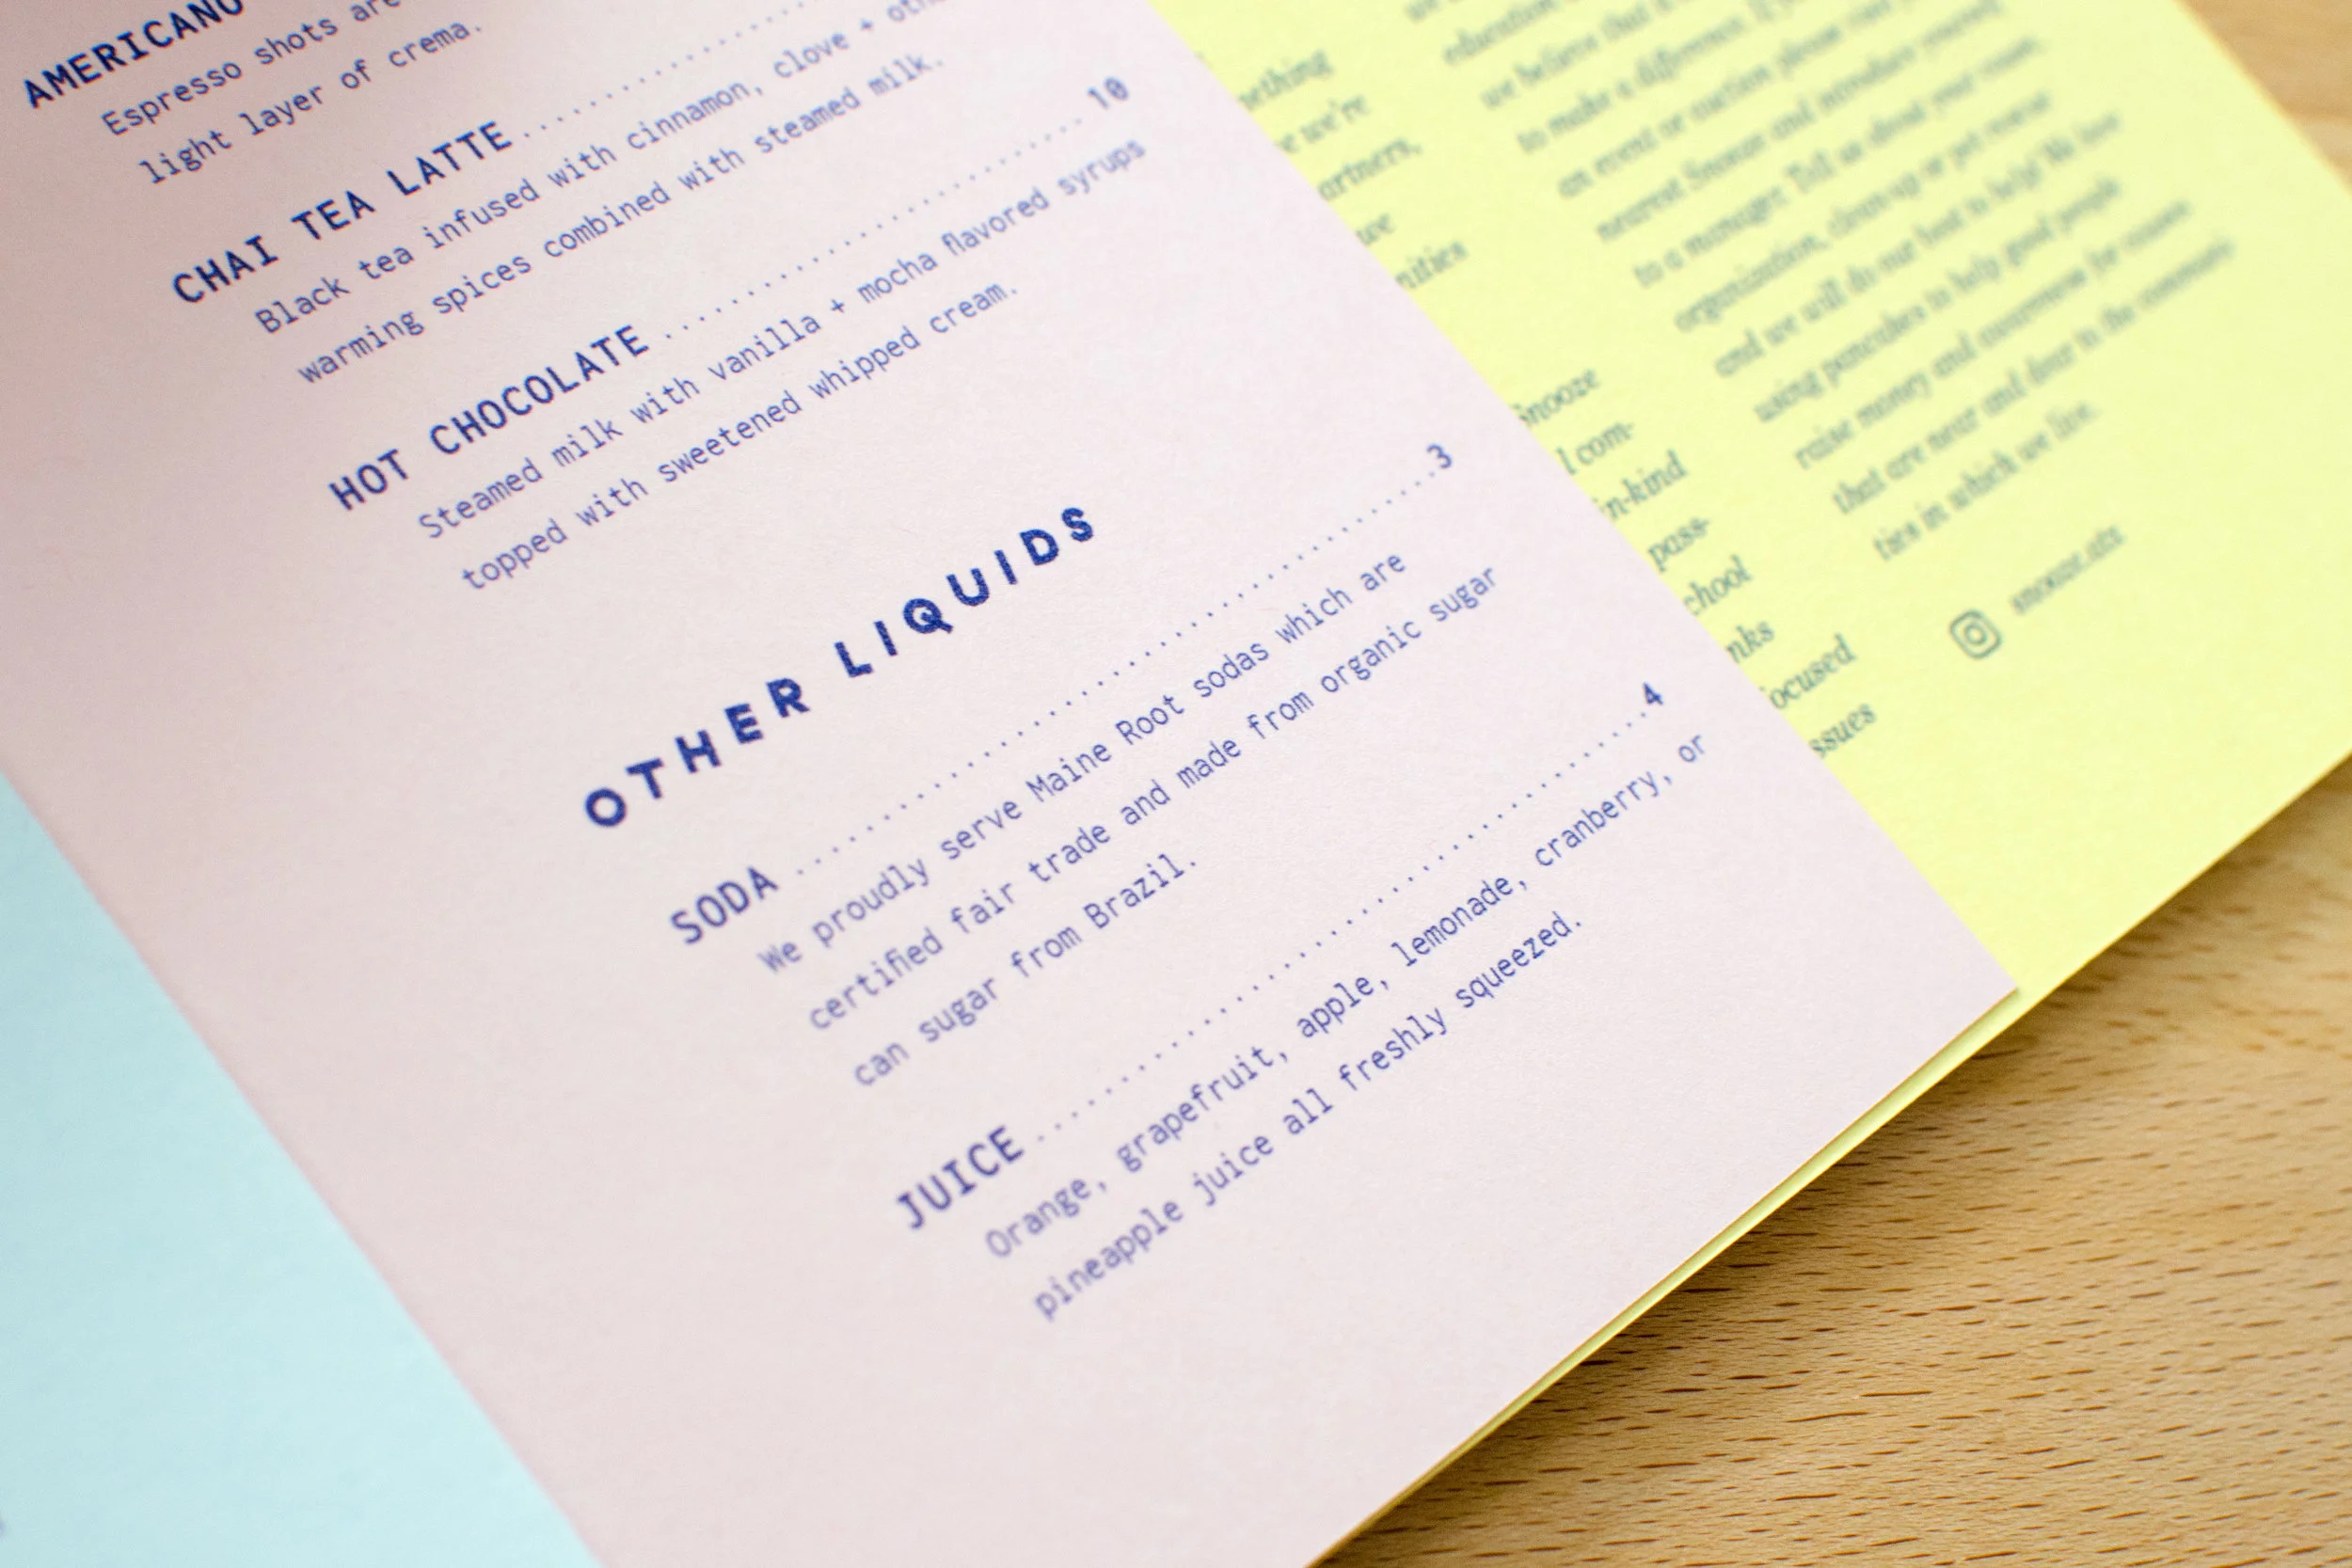 AMERICANO
Espresso shots are
light layer of crema.
CHAI TEA LATTE
Black tea infused with cinnamon, clove +
warming spices combined with steamed milk.
HOT CHOCOLATE 10
Steamed milk with vanilla + mocha flavored syrups
topped with sweetened whipped cream.
OTHER LIQUIDS
SODA 3
We proudly serve Maine Root sodas which are
certified fair trade and made from organic sugar
can sugar from Brazil.
JUICE 4
Orange, grapefruit, apple, lemonade, cranberry, or
pineapple juice all freshly squeezed.
we're
nities
Snooze
com-
in-kind
pass-
ocused
education
we believe that
to make a difference. If
an event or auction please
nearest Snooze and introduce yourself
to a manager. Tell us about your cause,
organization, clean-up or pet rescue
and we will do our best to help! We love
using pancakes to help good people
raise money and awareness for causes
that are near and dear to the communi-
ties in which we live.